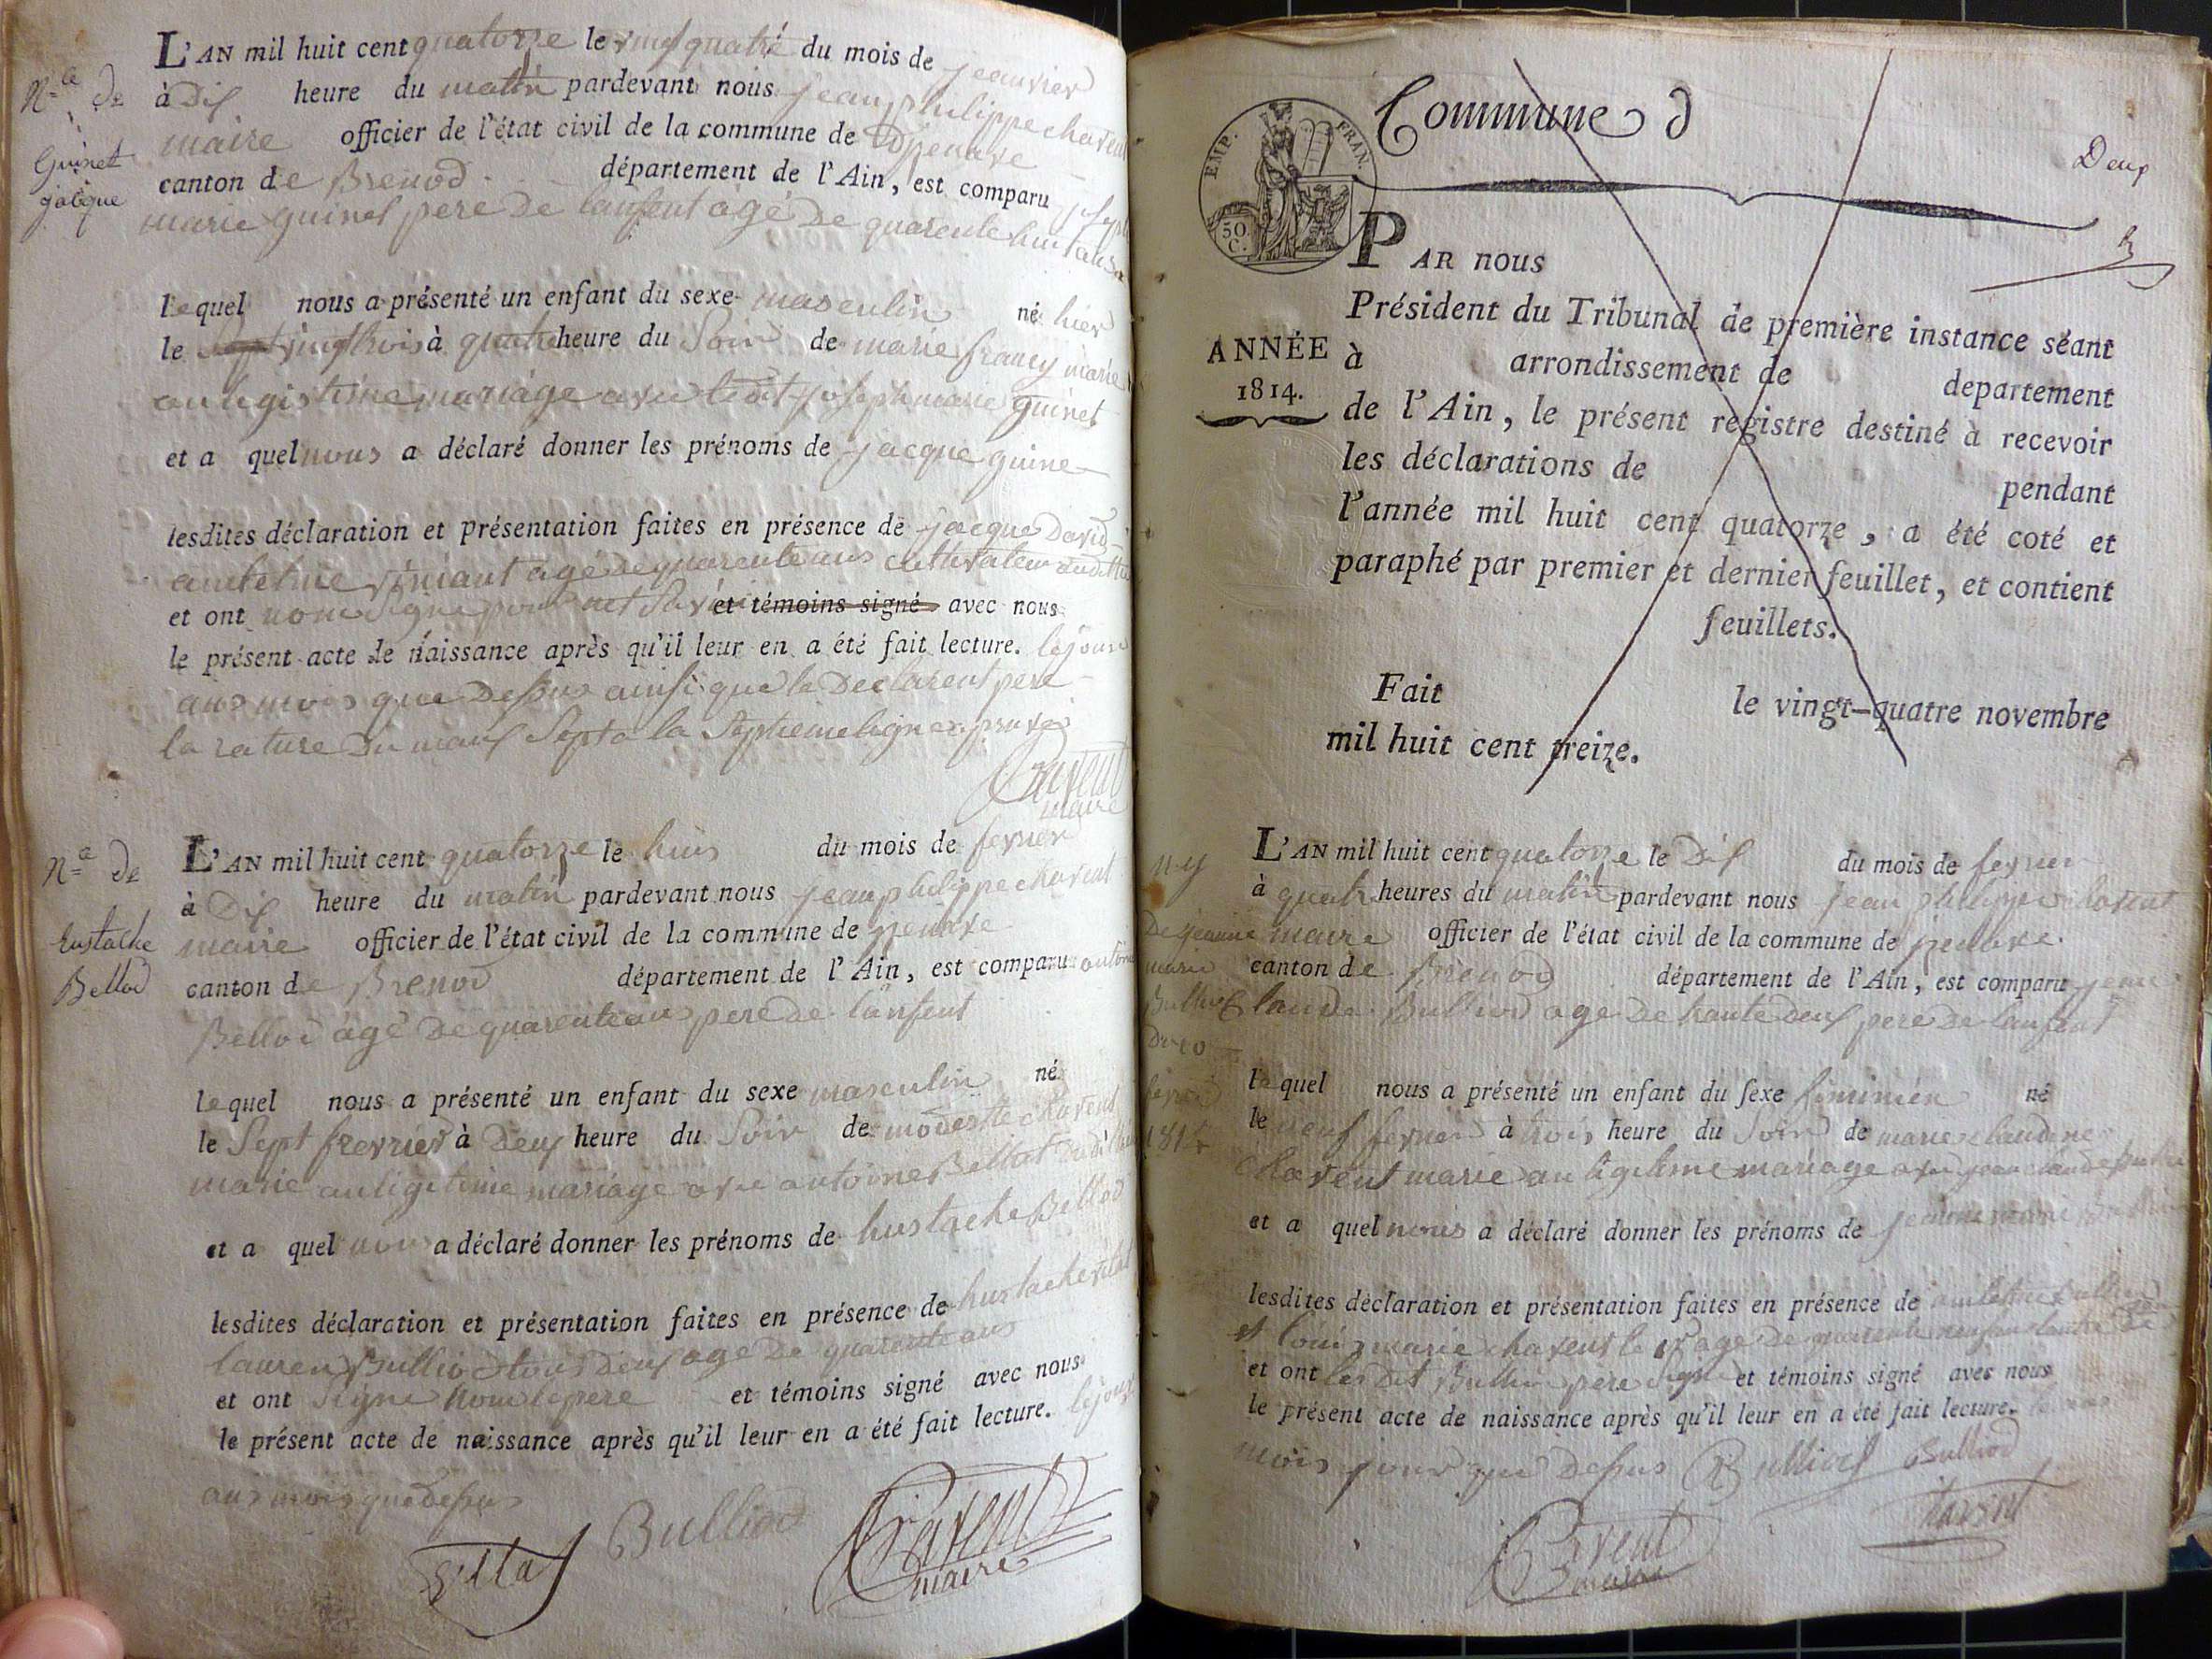 L'AN mil huit cent quatorze le vingt quatre du mois de jeanvier
à Dix heure du matin pardevant nous jean philippe chavent
maire officier de l'état civil de la commune de
canton de Brenod département de l'Ain, est comparu joseph
marie guinet pere De lanfent agé De quarente huit ans
Nce De
Guinet
jacque
lequel nous a présenté un enfant du sexe masculin né hier
le sept vingt trois à quatre heure du Soir de marie francy marie
au legistime mariage avec ledit joseph marie guinet
et a quel nous a déclaré donner les prénoms de jacque guine
lesdites déclaration et présentation faites en présence de jacque David
anclelme vinciant agé de quarente ans cultivateur
et ont nom signe pour net Savoir et témoins signé avec nous
le présent acte de naissance après qu'il leur en a été fait lecture. le jour
ans mois que Dessus ainsi que le Declarent pere
la rature Du mauf Sept a la Septieme ligne apruvé
Chavent
maire
Nce De
Eustache
Bellod
L'AN mil huit cent quatorze le huis du mois de fevrier
à Dix heure du matin pardevant nous jean philippe chavent
maire officier de l'état civil de la commune de
canton de Brenod département de l'Ain, est comparu antoine
Bellod agé De quarente ans pere De lanfent
lequel nous a présenté un enfant du sexe masculin né
le Sept frevrier à Deux heure du Soir de modestte chavent
marie au ligitime mariage avec antoine Bellat
et a quel nous a déclaré donner les prénoms de hustache Bellod
lesdites déclaration et présentation faites en présence de hustache vital
lauren Bulliod tous Deux agé De quarente ans
et ont signe hom le pere et témoins signé avec nous
le présent acte de naissance après qu'il leur en a été fait lecture. le jour
ans mois que dessus
Vital Bulliod Chavent
maire
Commune d
Deux
EMP. FRAN.
50 C.
PAR nous
Président du Tribunal de première instance séant
à arrondissement de departement
de l'Ain, le présent registre destiné à recevoir
les déclarations de pendant
l'année mil huit cent quatorze, a été coté et
paraphé par premier et dernier feuillet, et contient
feuillets.
ANNÉE
1814.
Fait le vingt-quatre novembre
mil huit cent treize.
De jeanne
marie
Bulliod
Du 10
fevrier
1814
L'AN mil huit cent quatorze le Dix du mois de fevrier
à quatre heures du matin pardevant nous jean philippe chavent
maire officier de l'état civil de la commune de
canton de Brenod département de l'Ain, est comparu jean
Claude Bulliod age De trante Deux pere De lanfent
lequel nous a présenté un enfant du sexe feminien né
le neuf fevrier à trois heure du Soir de marie claudine
Chavent marie au legitime mariage avec jean claude Bulliod
et a quel nous a déclaré donner les prénoms de jeanne marie Bulliod
lesdites déclaration et présentation faites en présence de
et loui marie chavent le age De quarente
et ont les Dit Bulliod pere signe et témoins signé avec nous
le présent acte de naissance après qu'il leur en a été fait lecture.
mois jour que Dessus Bulliod Bulliod
Chavent Chavent
maire